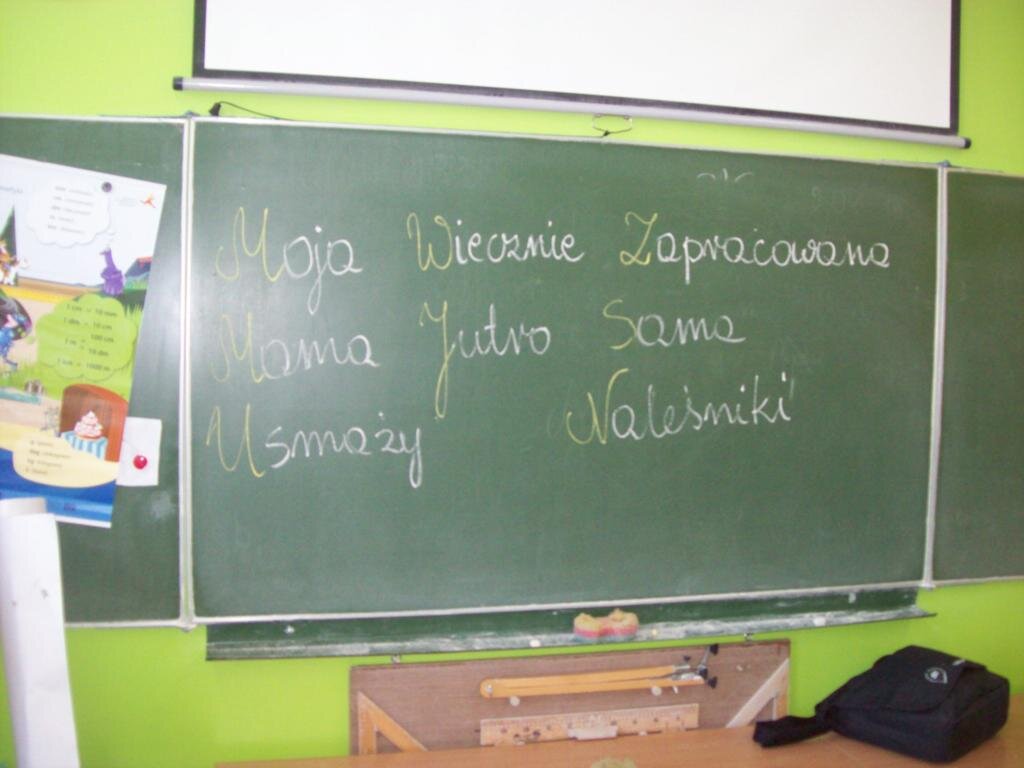 Moja Wiecznie Zapracowana
Mama Jutro Sama
Usmaży Naleśniki
1 cm = 10 mm
1 dm = 10 cm
100 cm
10 dm
1 km = 1000 m